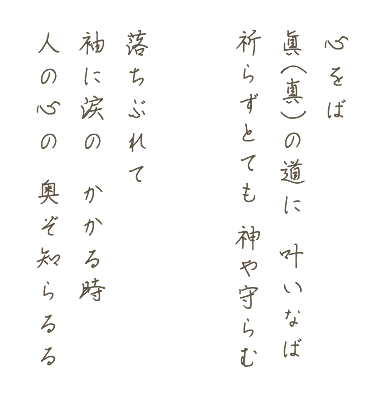 心をば
眞(真)の道に 叶いなば
祈らずとても 神や守らむ
落ちぶれて
袖に涙の かかる時
人の心の 奥ぞ知らるる